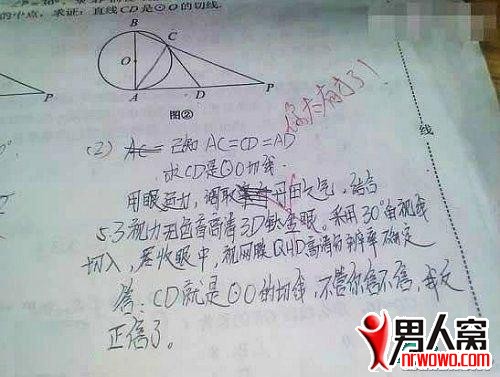 的中点，求证：直线CD是⊙O的切线.
B
C
O
A
D
P
P
图②
线
(2) AC= 已知 AC=CD=AD
求CD是⊙O切线.
用眼
5.3视力无色盲高清3D钛金眼。采用30°角视线
切入，尽收眼中，视网膜QHD高清分辨率确定
答：CD就是⊙O的切线，不管你信不信，我反
正信了。
男人窝
nrwowo.com